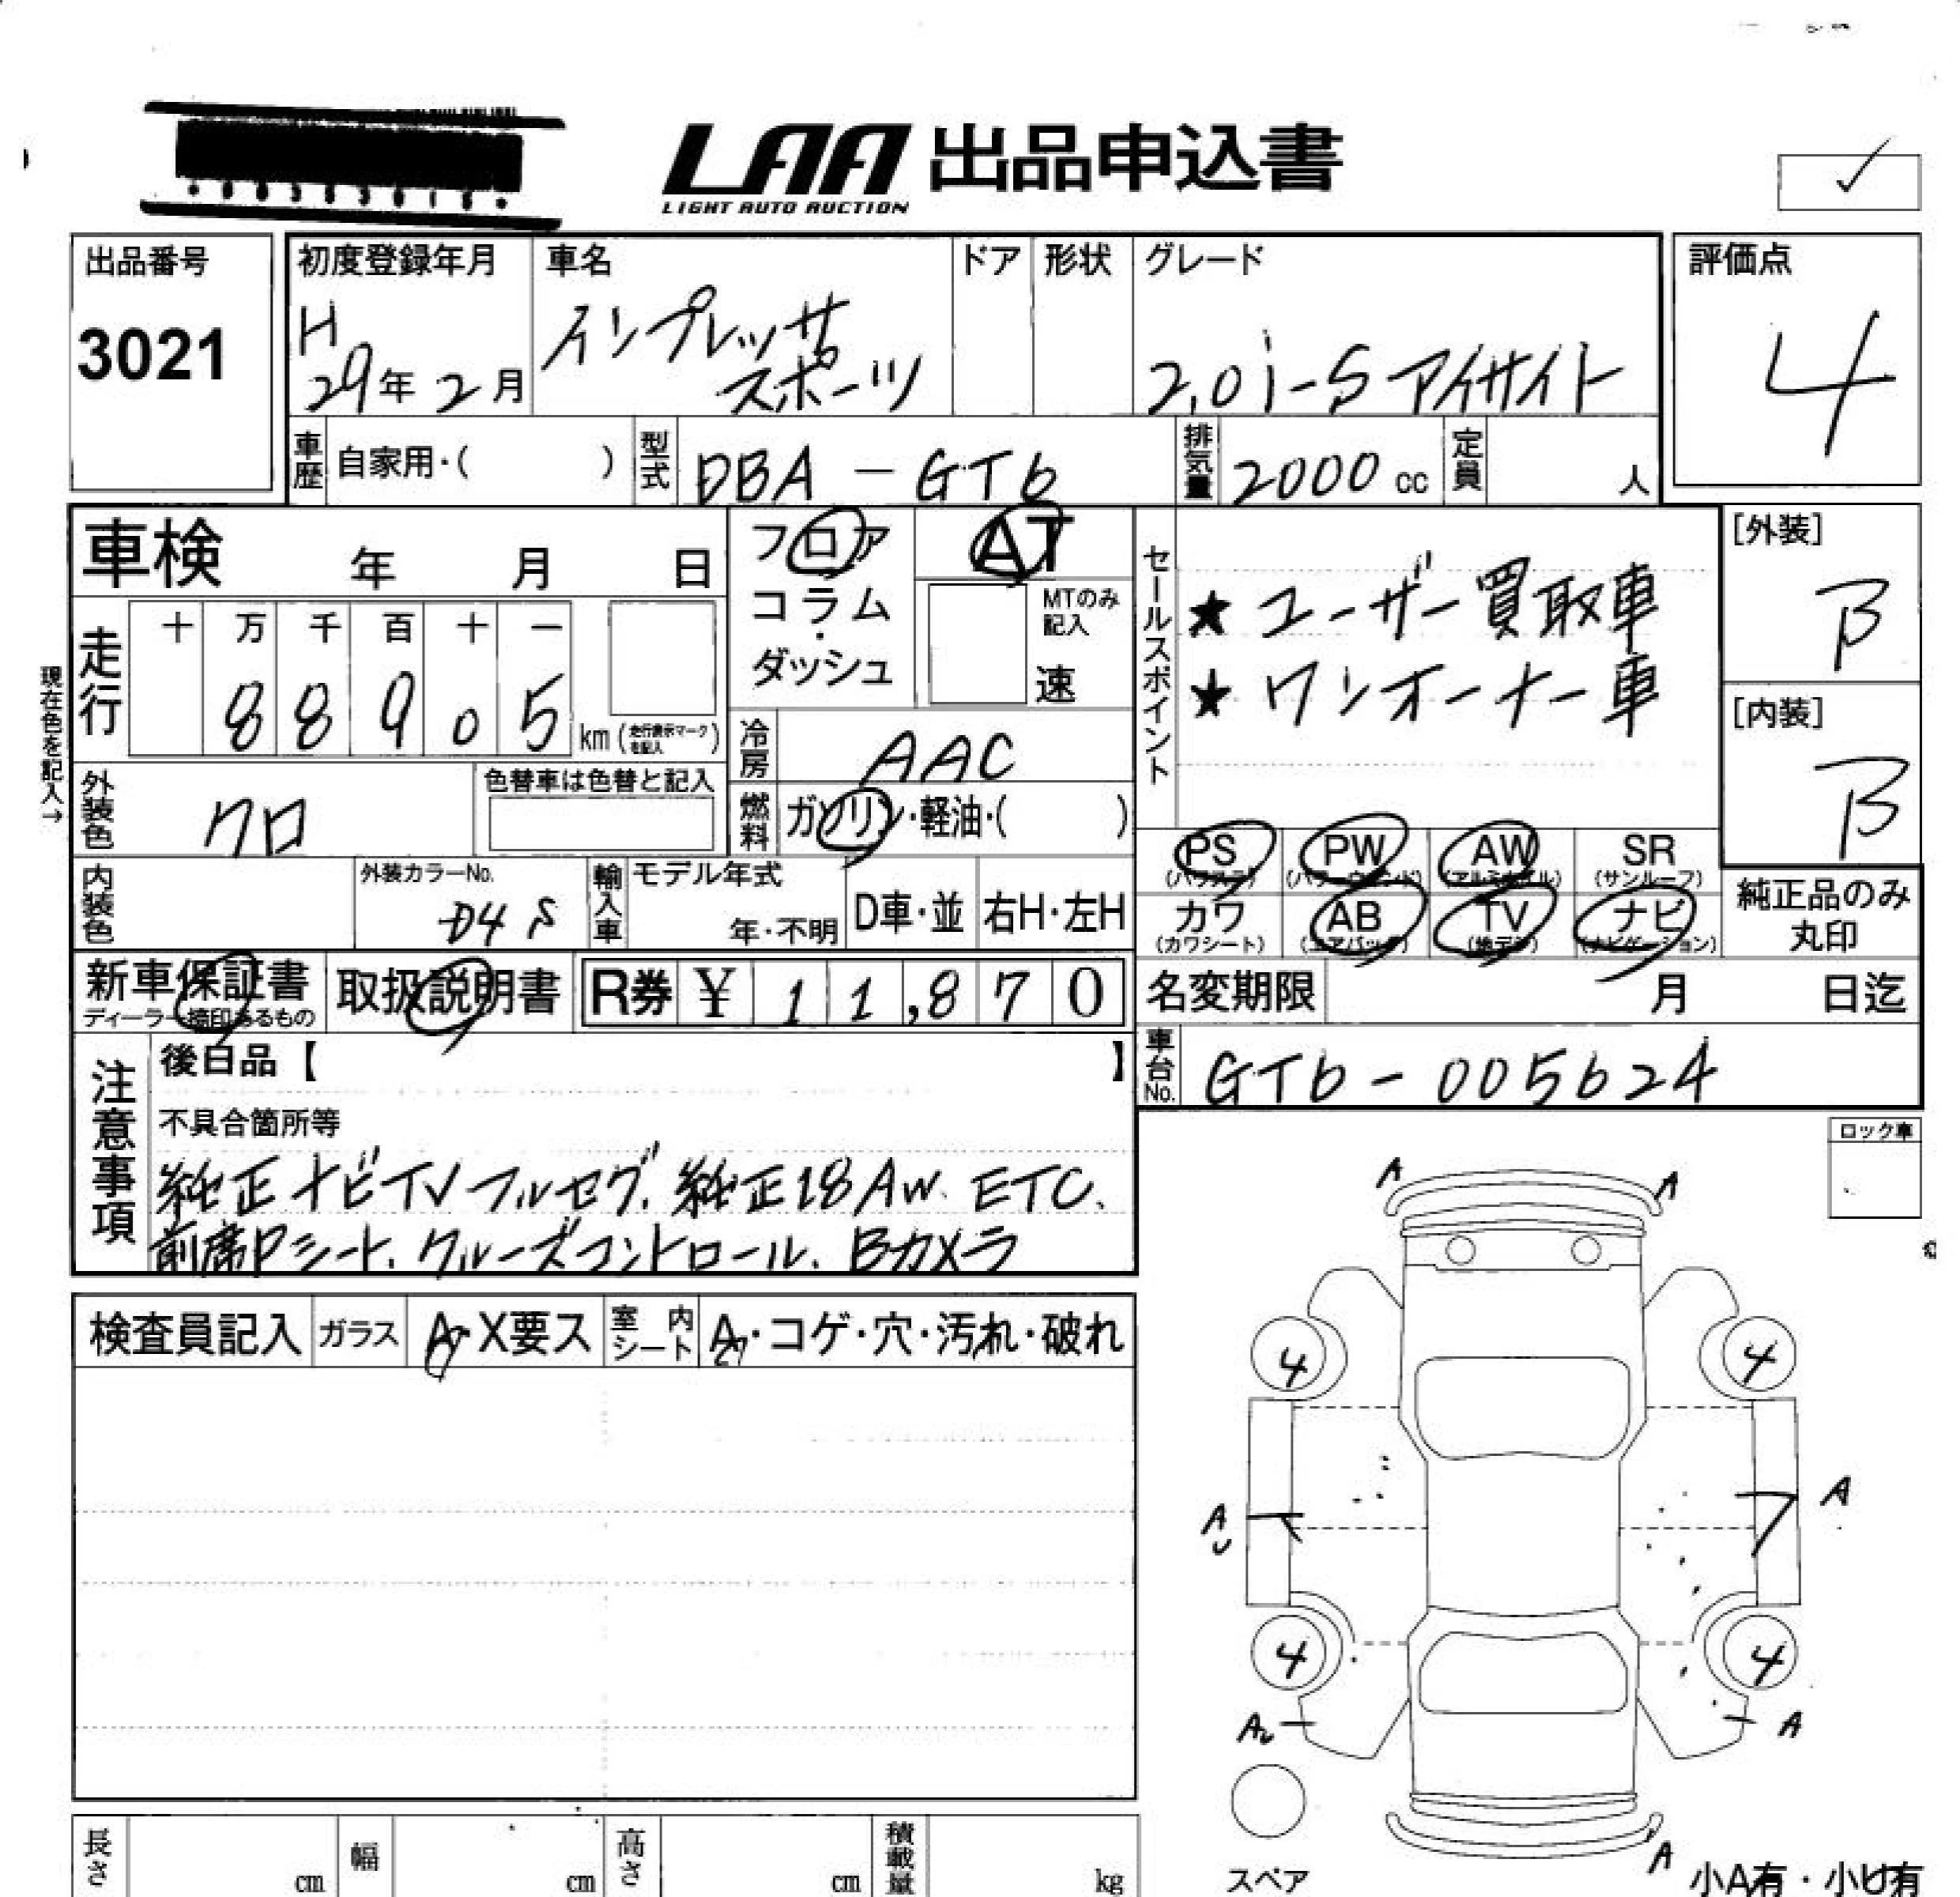 LAA 出品申込書
LIGHT AUTO AUCTION
出品番号
3021
初度登録年月
H
29年 2月
車名
インプレッサ
スポーツ
ドア
形状
グレード
2.0i-S アイサイト
評価点
4
車歴 自家用・( )
型式 DBA - GT6
排気量 2000 cc
定員 人
車検 年 月 日
フロア
コラム
・
ダッシュ
AT
MTのみ
記入
速
セールスポイント
★ ユーザー買取車
★ ワンオーナー車
[外装]
B
[内装]
B
現在色を記入→
走行
十 万 千 百 十 一
8 8 9 0 5 km (走行表示マークを記入)
冷房 AAC
外装色 クロ
色替車は色替と記入
燃料 ガソリン・軽油・( )
PS PW AW SR
(パワステ) (パワーウィンド) (アルミホイル) (サンルーフ)
カワ AB TV ナビ
(カワシート) (エアバッグ) (地デジ) (ナビゲーション)
純正品のみ
丸印
内装色
外装カラーNo.
D4S
輸入車
モデル年式
年・不明
D車・並
右H・左H
新車保証書
ディーラー捺印あるもの
取扱説明書
R券 ¥ 11,870
名変期限 月 日迄
車台No. GT6-005624
注意事項
後日品【 】
不具合箇所等
純正ナビTVフルセグ、純正18AW、ETC、
前席Pシート、クルーズコントロール、Bカメラ
ロック車
検査員記入
ガラス
A・X要ス
室内
シート
A・コゲ・穴・汚れ・破れ
A A
4 4
A A
4 4
A A
A
スペア
小A有・小U有
長さ cm
幅 cm
高さ cm
積載量 kg